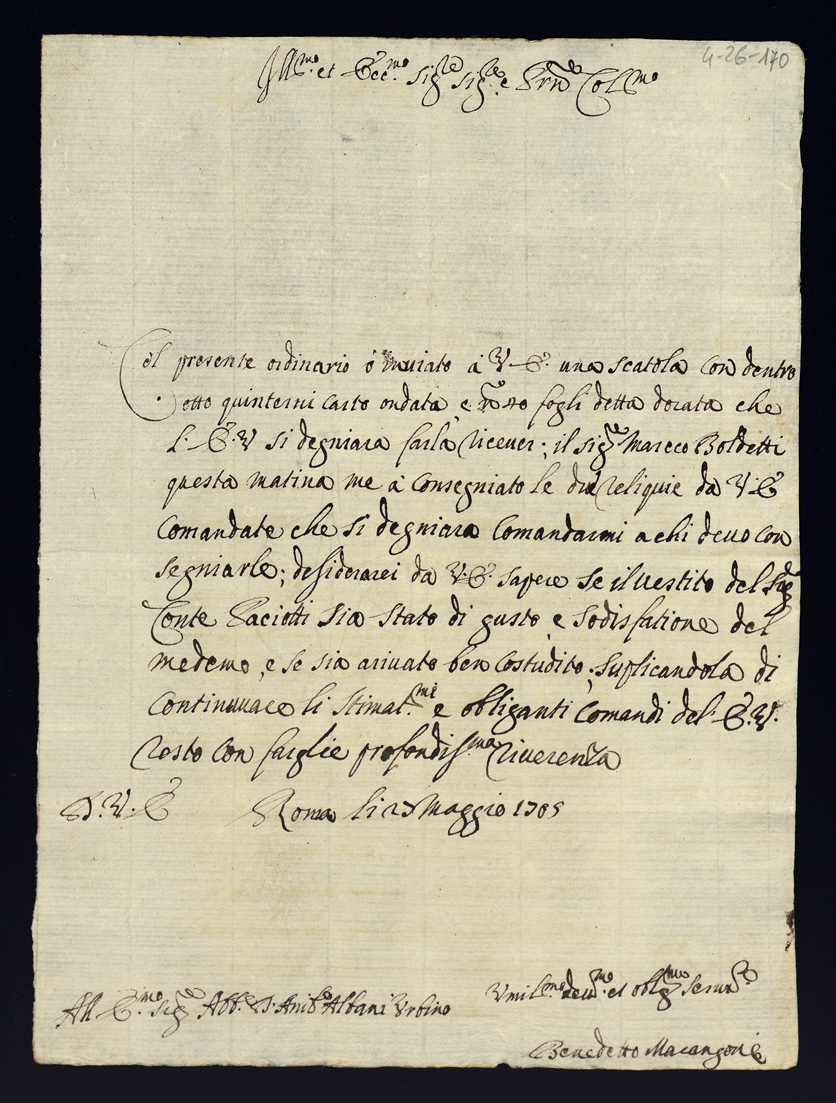 4-26-170
Ill.mo et Ecc.mo Sig.re Sig.re e Prn Col.mo
Col presente ordinario ò inviato à V E. una scatola con dentro
otto quinterni carto ondata, e fogli detta dorata che
l. E. V si degniara farla ricever; il Sig.re Mareco Boldetti
questa matina me à consegniato le due reliquie da V E
Comandate che si degniara Comandarmi a chi devo con
segniarle; desiderarei da V. E. sapere se il vestito del Sig.
Conte Paciotti sia stato di gusto, e sodisfatione del
medemo, e se sia arivato ben costudito; suplicandola di
Continuare li stimat.mi e obliganti Comandi del. E. V.
resto con farglie profondis.ma riverenza
D. V. E Roma li 23 Maggio 1705
All E.mo Sig.re Abb. D. Anib.e Albani Urbino
Umil.mo dev.mo et oblg.mo Serv.re
Benedetto Macangoni